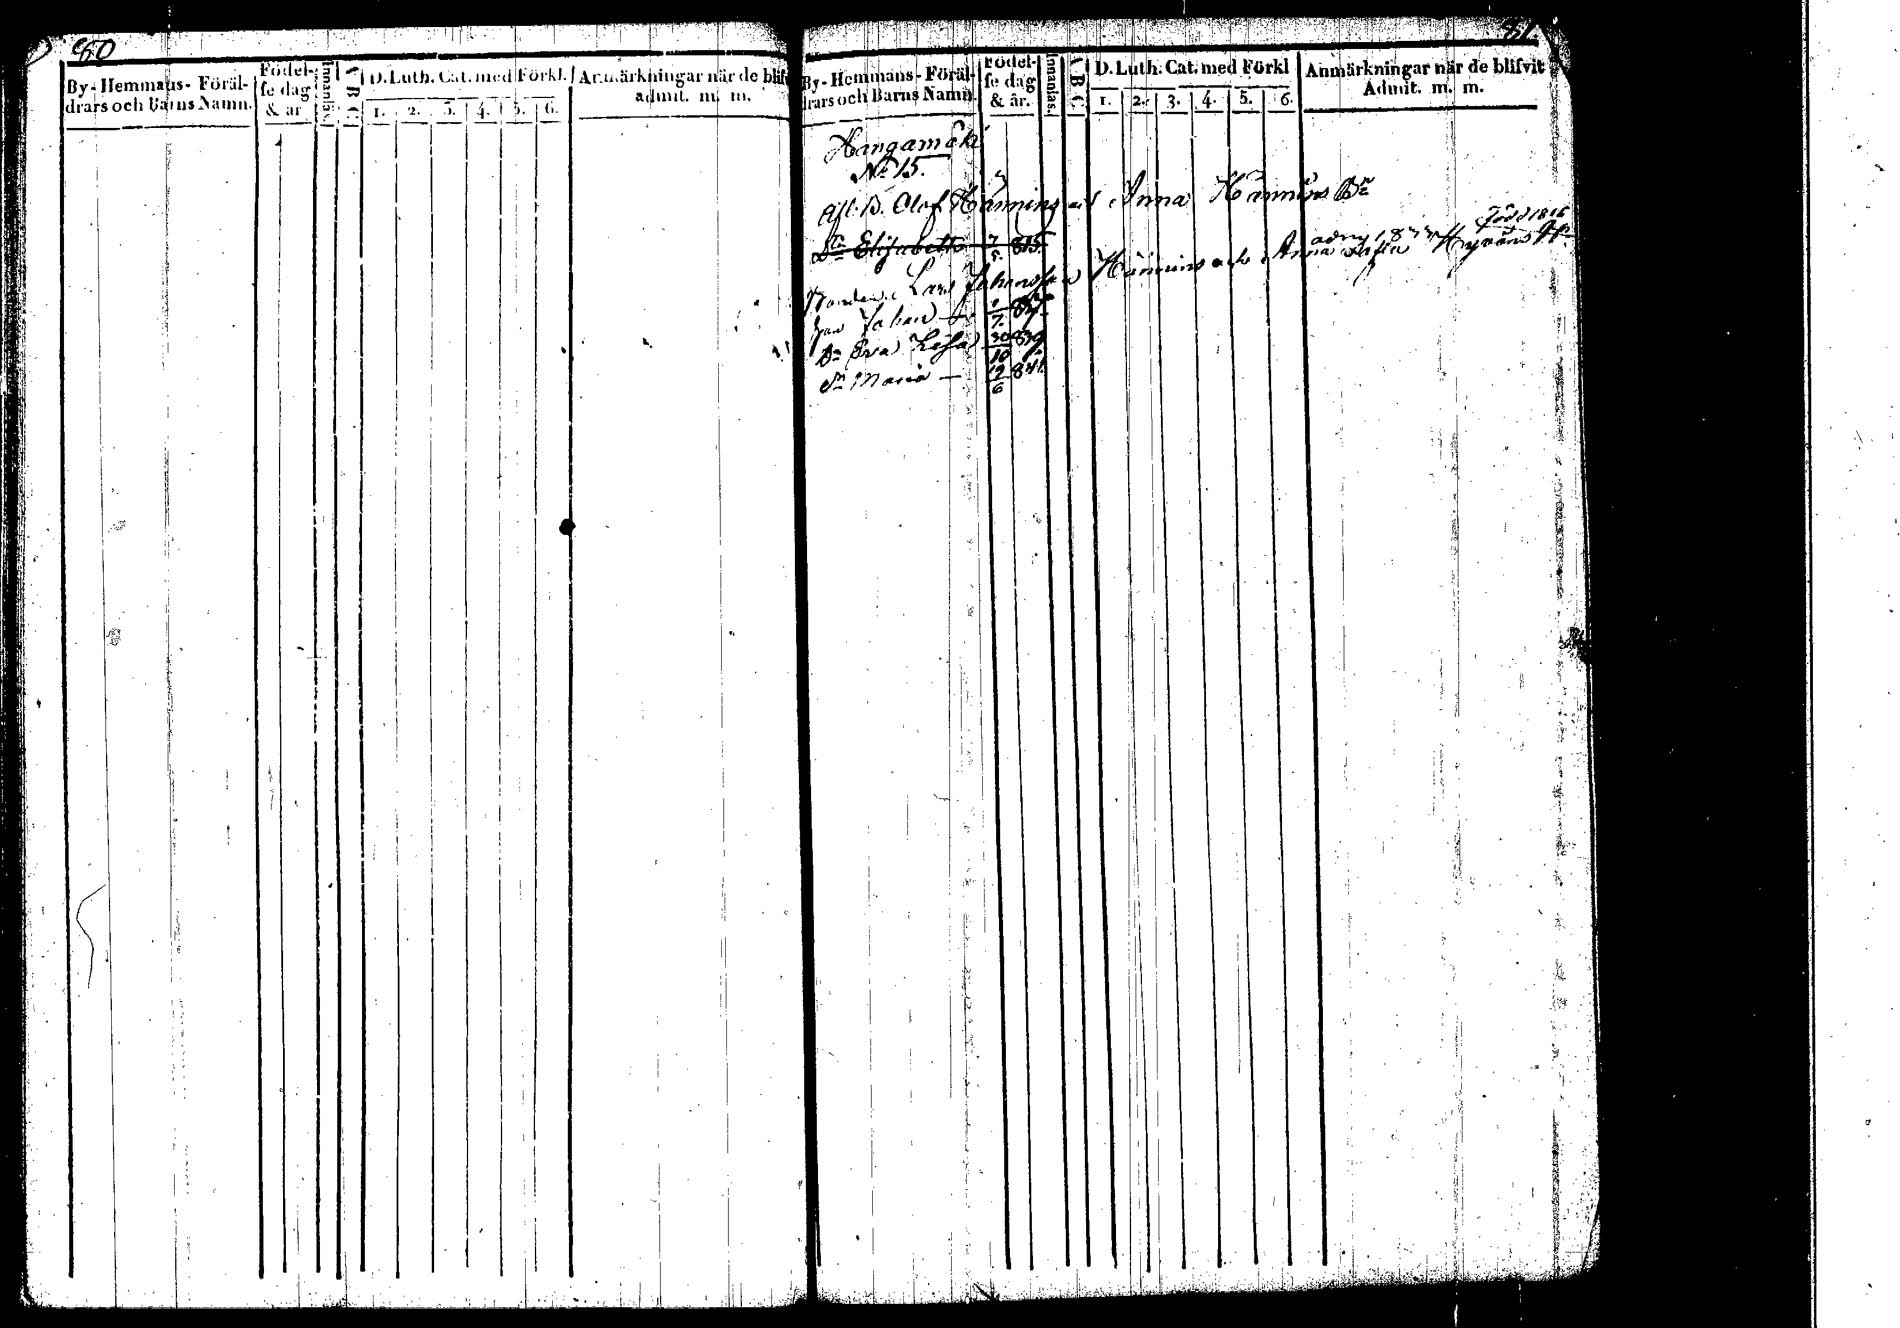 80
By-Hemmans-Föräl-
drars och Barns Namn.
Födel-
se dag
& år
Innanläs.
A B C
D. Luth. Cat. med Förkl.
1. 2. 3. 4. 5. 6.
Anmärkningar när de blifvit
admit. m. m.
81.
By-Hemmans-Föräl-
drars och Barns Namn.
Födel-
se dag
& år.
Innanläs.
A B C
D. Luth. Cat. med Förkl
1. 2. 3. 4. 5. 6.
Anmärkningar när de blifvit
Admit. m. m.
Kangamäki
No 15.
Afl. B. Olof Hänning och Anna Hännins Dr
Dr Elisabeth 7/5. 815.
född 1816
Lars Johansson Hännins och Anna Hyväns
Johan 7. 837.
Dr Eva Lisa 30/10 839
Dr Maria — 19/6 841.